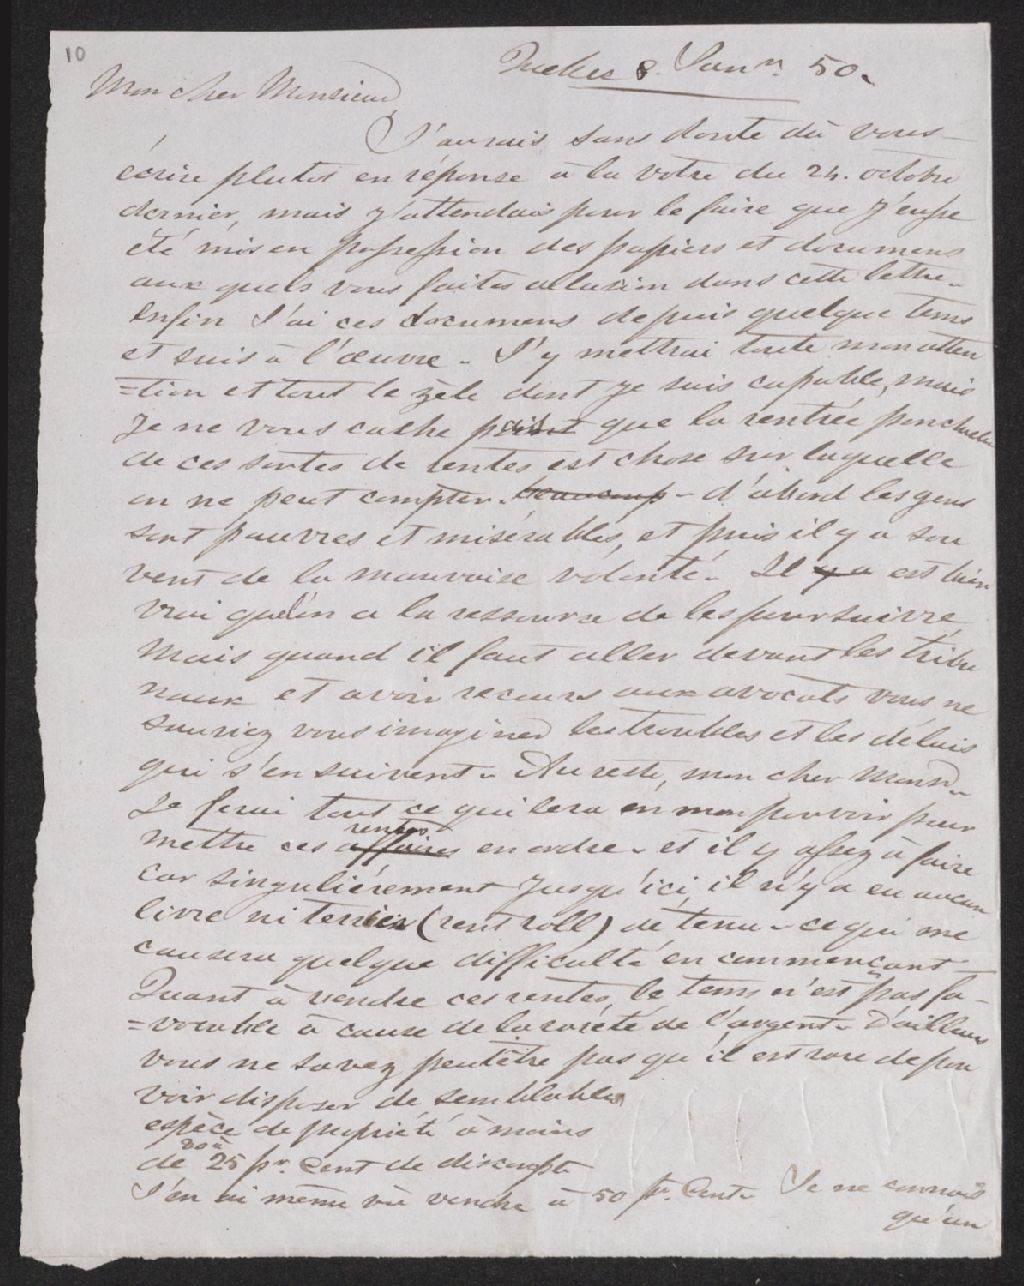 10
Quebec 8 Janvr. 50.
Mon cher Monsieur
J'aurais sans doute dû vous
écrire plutot en réponse à la votre du 24. octobre
dernier, mais j'attendais pour le faire que j'eusse
été mis en possession des papiers et documens
aux quels vous faites allusion dans cette lettre.
Enfin J'ai ces documens depuis quelque tems
et suis à l'œuvre - J'y mettrai toute mon atten
=tion et tout le zèle dont je suis capable, mais
Je ne vous cache point que la rentrée ponctuelle
de ces sortes de rentes est chose sur laquelle
on ne peut compter. beaucoup - d'abord les gens
sont pauvres et misérables, et puis il y a sou
vent de la mauvaise volonté. Il y a est bien
vrai qu'on a la ressource de les poursuivre,
Mais quand il faut aller devant les tribu
naux et avoir recours aux avocats vous ne
sauriez vous imaginer les troubles et les délais
qui s'en suivent. Au reste, mon cher Monsr.
Je ferai tout ce qui sera en mon pouvoir pour
rentes
mettre ces affaires en ordre. et il y assez à faire
Car singulièrement jusqu'ici, il n'y a eu aucun
livre ni terrier (rent roll) de tenu - ce qui me
causera quelque difficulté en commençant -
Quant à vendre ces rentes, le tems n'est pas fa-
=vorable à cause de la rareté de l'argent. D'ailleurs
vous ne savez peutêtre pas qu'il est rare de pou
voir disposer de semblables
espèce de propriété à moins
20 à
de 25 pr. Cent de discompte
J'en ai même vû vendre à 50 pr. Cent. Je ne connais
qu'un